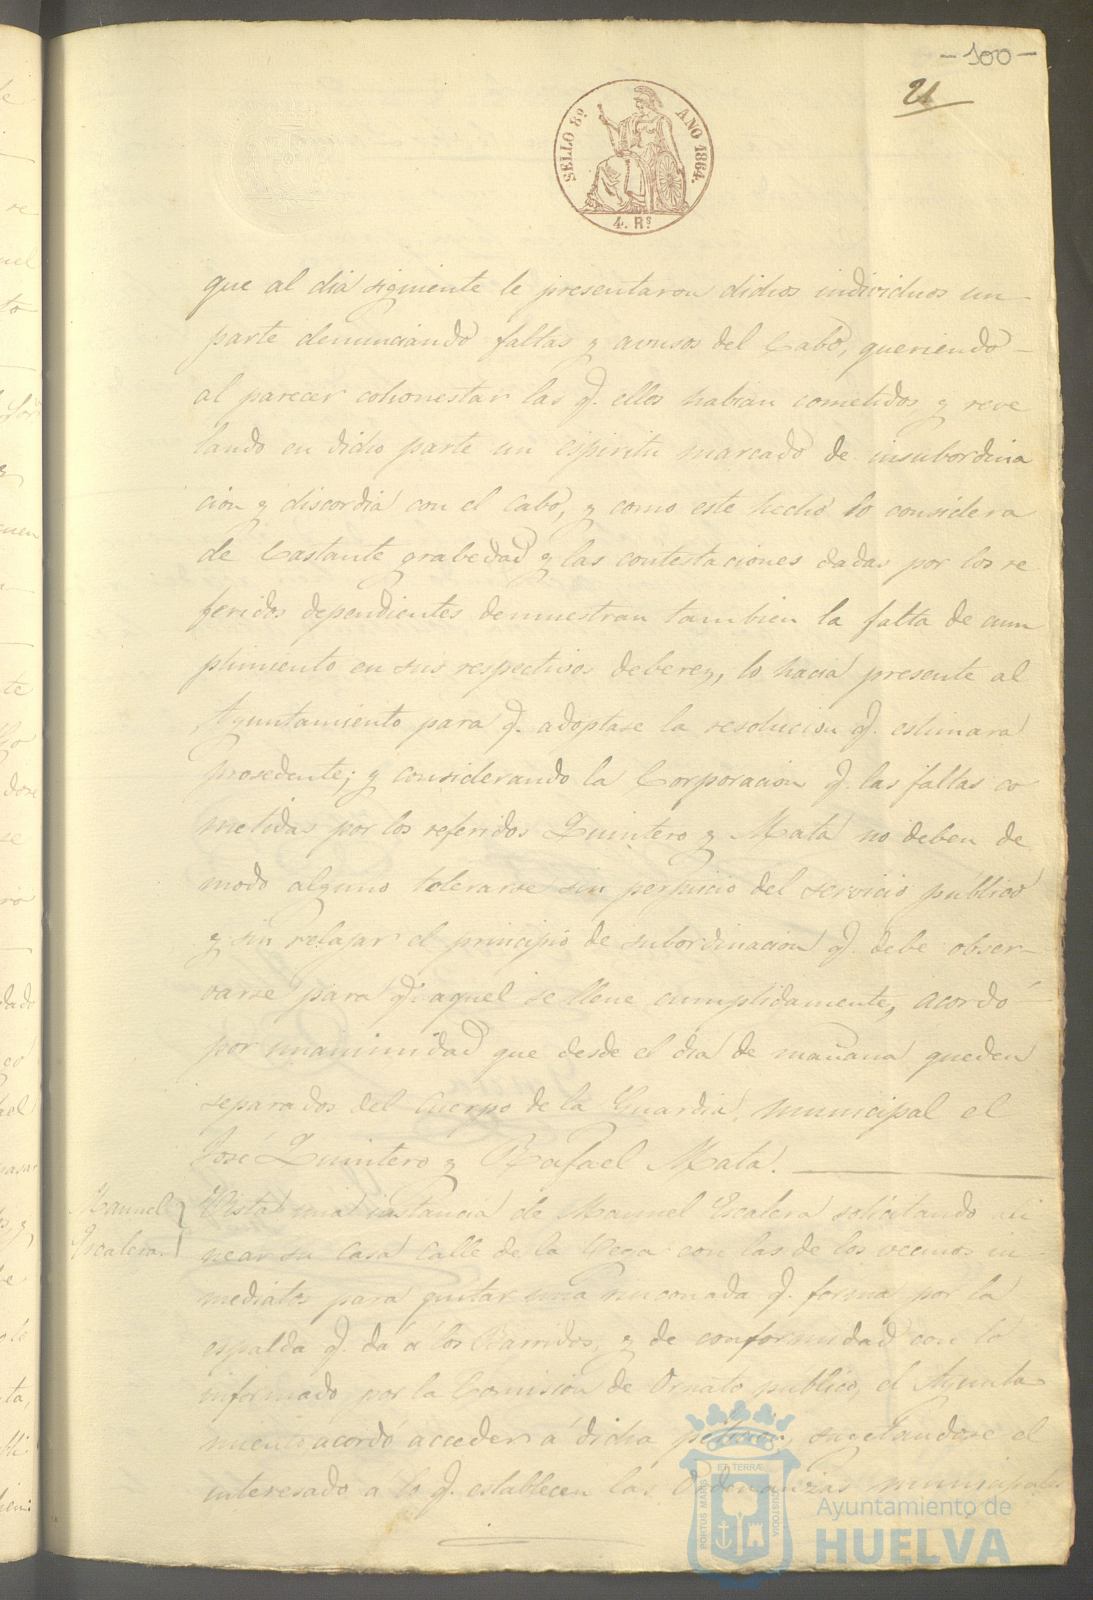 - 100 -
21
SELLO 8º AÑO 1864.
4. Rs
que al dia siguiente le presentaron dichos individuos un
parte denunciando faltas y avusos del Cabo, queriendo
al parecer cohonestar las q. ellos habian cometidos, y reve
lando en dicho parte un espiritu marcado de insubordina
cion y discordia con el Cabo, y como este hecho lo considera
de bastante grabedad y las contestaciones dadas por los re
feridos dependientes demuestran tambien la falta de cum
plimiento en sus respectivos deberes, lo hacia presente al
Ayuntamiento para q. adoptase la resolucion q. estimara
prosedente; y considerando la Corporacion q. las faltas co
metidas por los referidos Quintero y Mata no deben de
modo alguno tolerarse sin perjuicio del servicio público
y sin relajar el principio de subordinacion q. debe obser-
varse para q. aquel se llene cumplidamente, acordó
por unanimidad que desde el dia de mañana queden
separados del cuerpo de la Guardia municipal el
José Quintero y Rafael Mata.
Manuel
Escalera.
Vista una instancia de Manuel Escalera solicitando ali
near su casa calle de la Vega con las de los vecinos in
mediatos para quitar una rinconada q. forma por la
espalda q. dá á los Barridos, y de conformidad con lo
informado por la Comision de Ornato público, el Ayunta
miento acordó acceder á dicha peticion, sugetandose el
interesado á lo q. establecen las Ordenanzas municipales
PORTUS MARIS ET TERRÆ CUSTODIA
Ayuntamiento de
HUELVA